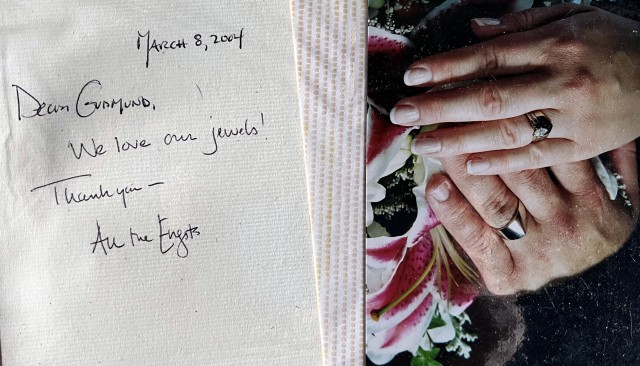 March 8, 2004
Dear Gudmund,
We love our jewels!
Thank you —
All the Engsts